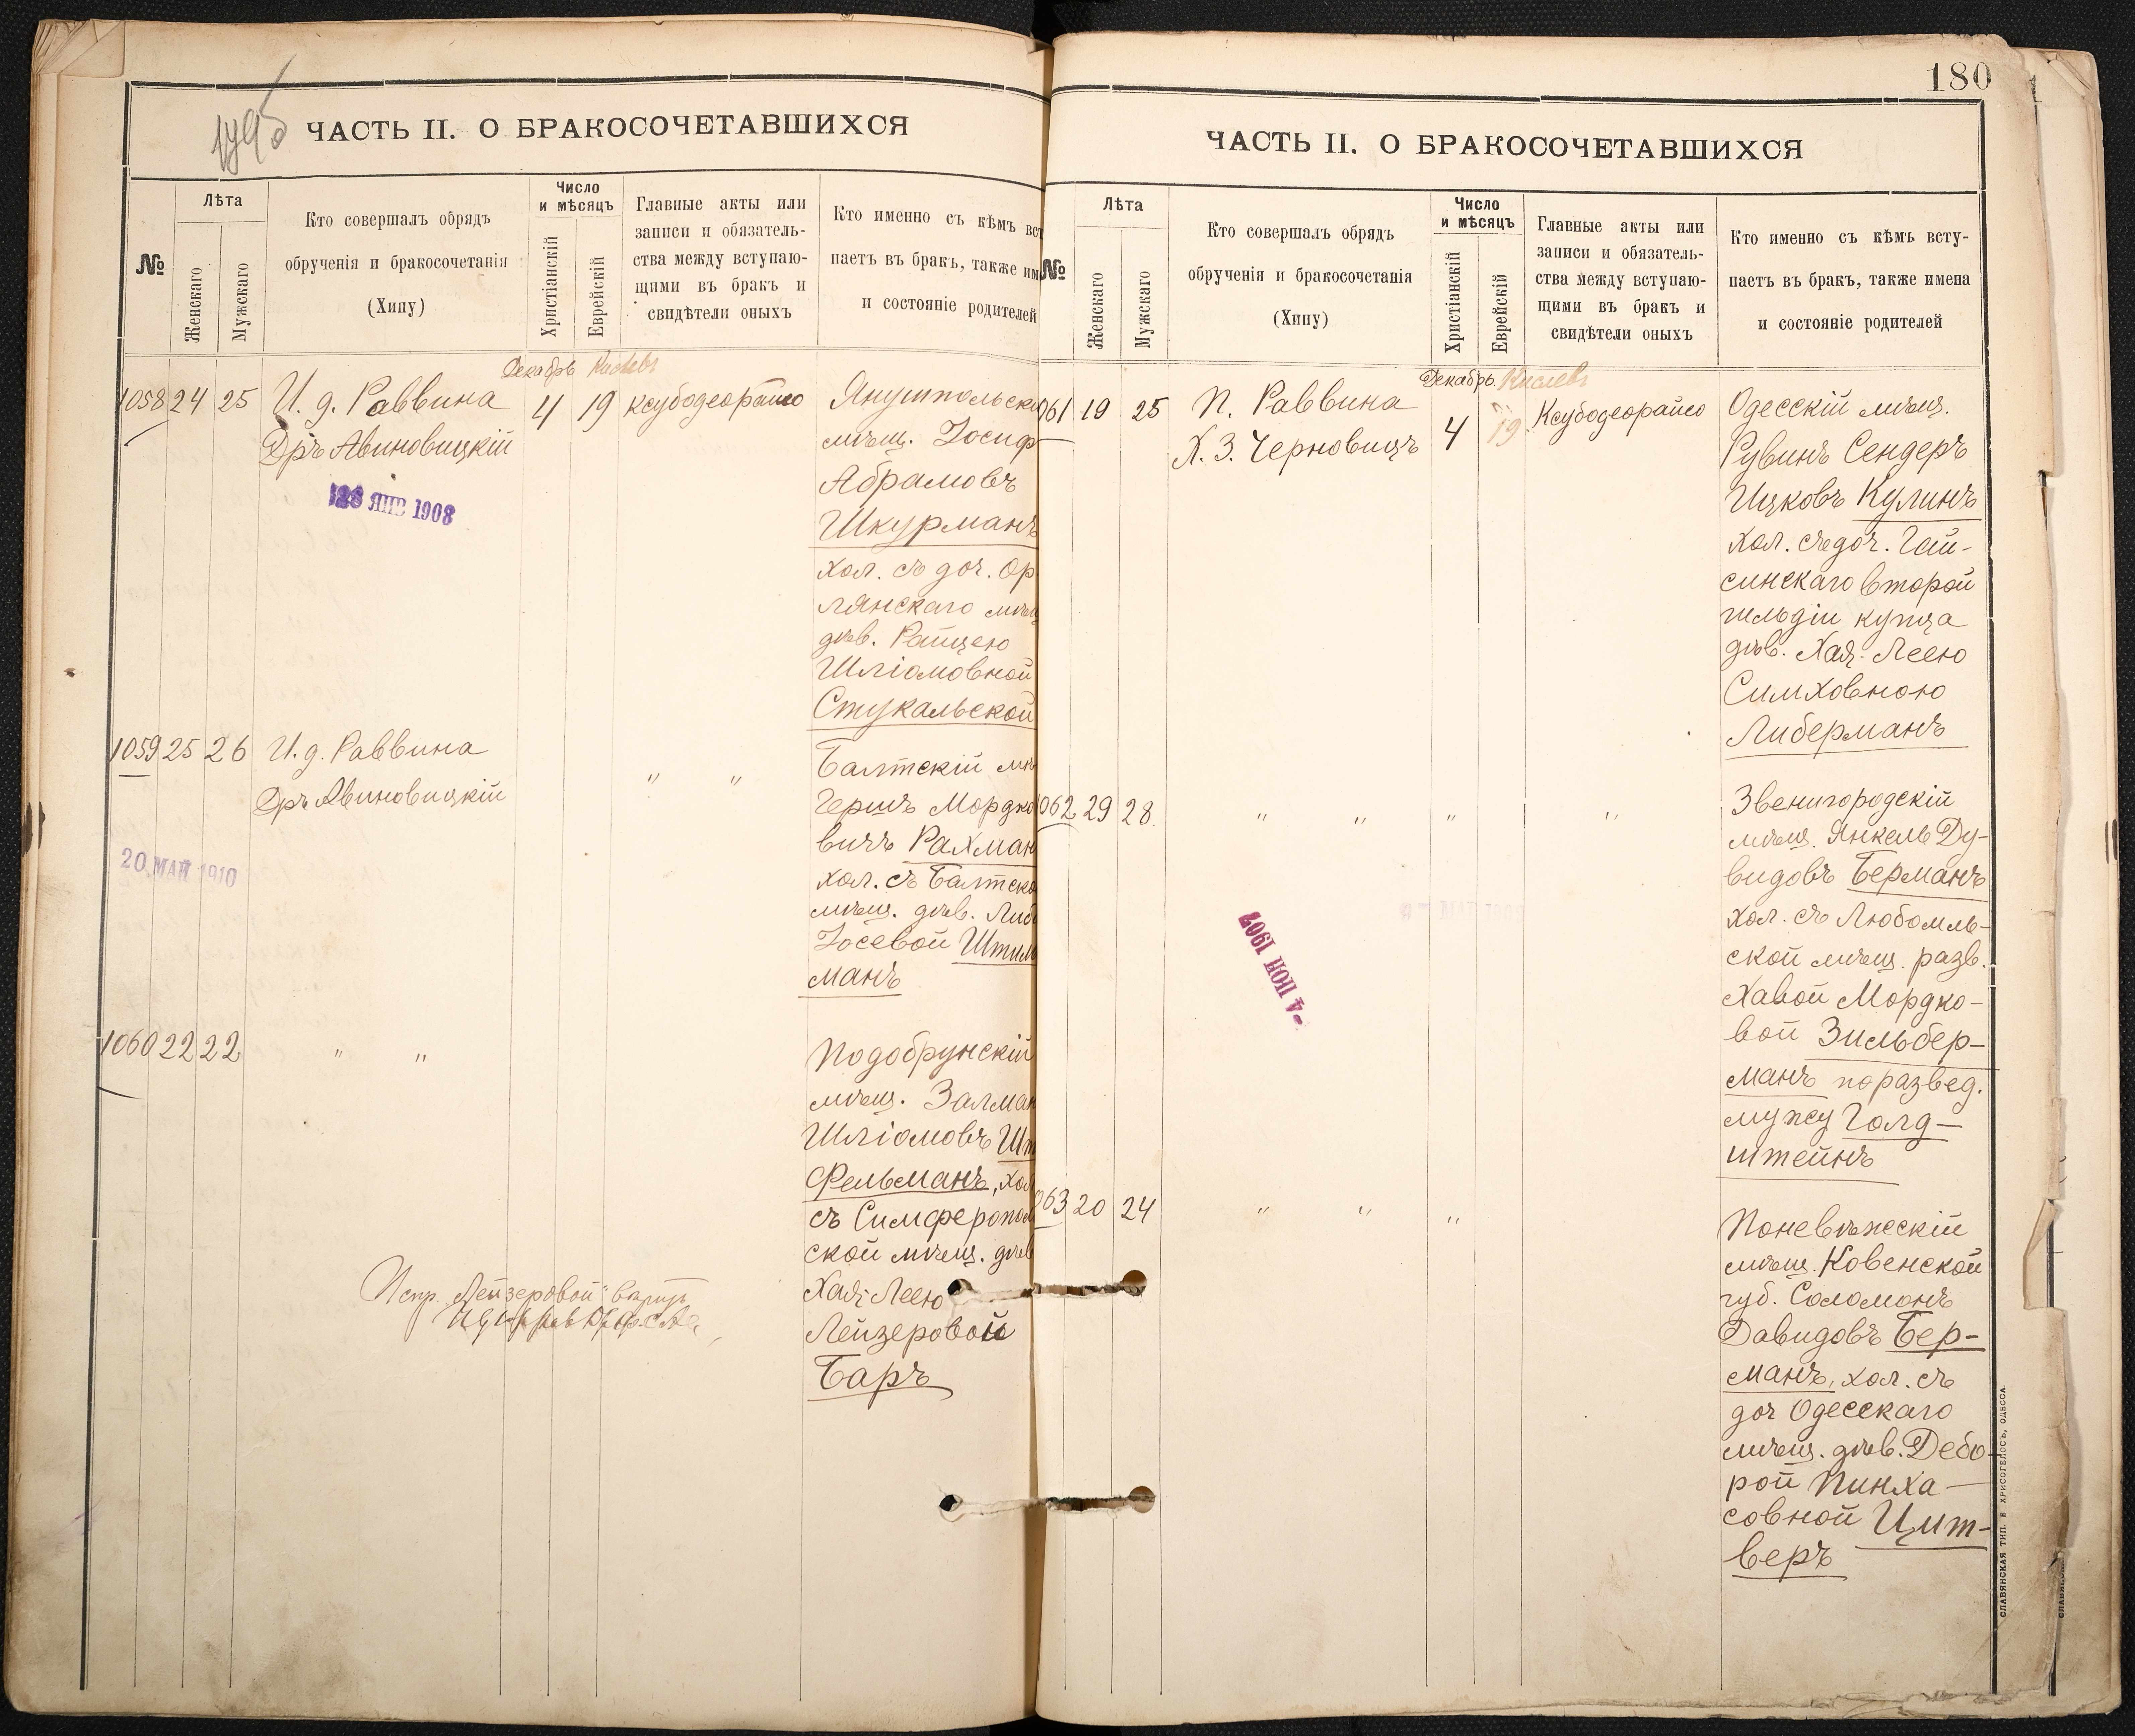 ЧАСТЬ II. О БРАКОСОЧЕТАВШИХСЯ
№
Лѣта
Женскаго
Мужскаго
Кто совершалъ обрядъ
обрученія и бракосочетанія
(Хипу)
Число
и мѣсяцъ
Христіанскій
Еврейскій
Главные акты или
записи и обязатель-
ства между вступаю-
щими въ бракъ и
свидѣтели оныхъ
Кто именно съ кѣмъ вст
паетъ въ бракъ, также им
и состояніе родителей
Декабрь Кислевъ
1058 24 25 И. д. Раввина 4 19 ксубодеорайсо
Дръ Авиновицкій
28 ЯНВ 1908
Янушпольскі
мѣщ. Іосиф
Абрамовъ
Шкурманъ
хол. съ доч. Ор
лянскаго мѣщ
дѣв. Райцею
Шліомовной
Стукальской
1059 25 26 И. д. Раввина " "
Дръ Авиновицкій
20 МАЙ 1910
Балтскій мѣ
Гершъ Мордко
вичъ Рахман
хол. съ Балтско
мѣщ. дѣв.
Іосевой Штиль
манъ
1060 22 22 " "
Подобрунскій
мѣщ. Залман
Шліомовъ Шт
фельманъ, хол
съ Симферопол
ской мѣщ. дѣв
Хая-Леею
Лейзеровой
Баръ
Испр. "Лейзеровой"
180
ЧАСТЬ II. О БРАКОСОЧЕТАВШИХСЯ
№
Лѣта
Женскаго
Мужскаго
Кто совершалъ обрядъ
обрученія и бракосочетанія
(Хипу)
Число
и мѣсяцъ
Христіанскій
Еврейскій
Главные акты или
записи и обязатель-
ства между вступаю-
щими въ бракъ и
свидѣтели оныхъ
Кто именно съ кѣмъ всту-
паетъ въ бракъ, также имена
и состояніе родителей
Декабрь. Кислевъ
061 19 25 П. Раввина 4 19 Ксубодеорайсо
Х. З. Черновицъ
Одесскій мѣщ.
Рувинъ Сендеръ
Ицковъ Кулинъ
хол. съ доч. Гай-
синскаго второй
гильдіи купца
дѣв. Хая-Леею
Симховною
Либерманъ
062 29 28. " " " "
4 ІЮН 1907
Звенигородскій
мѣщ. Янкель Ду-
видовъ Берманъ
хол. съ Любомль-
ской мѣщ. разв.
Хавой Мордко-
вой Зильбер-
манъ по развед.
мужу Голд-
штейнъ
063 20 24 " " "
Поневѣжескій
мѣщ. Ковенской
губ. Соломонъ
Давидовъ Бер-
манъ, хол. съ
доч Одесскаго
мѣщ. дѣв. Дебо-
рой Пинха-
совной Цит-
веръ
СЛАВЯНСКАЯ ТИП. Е ХРИСОГЕЛОСЪ, ОДЕССА.